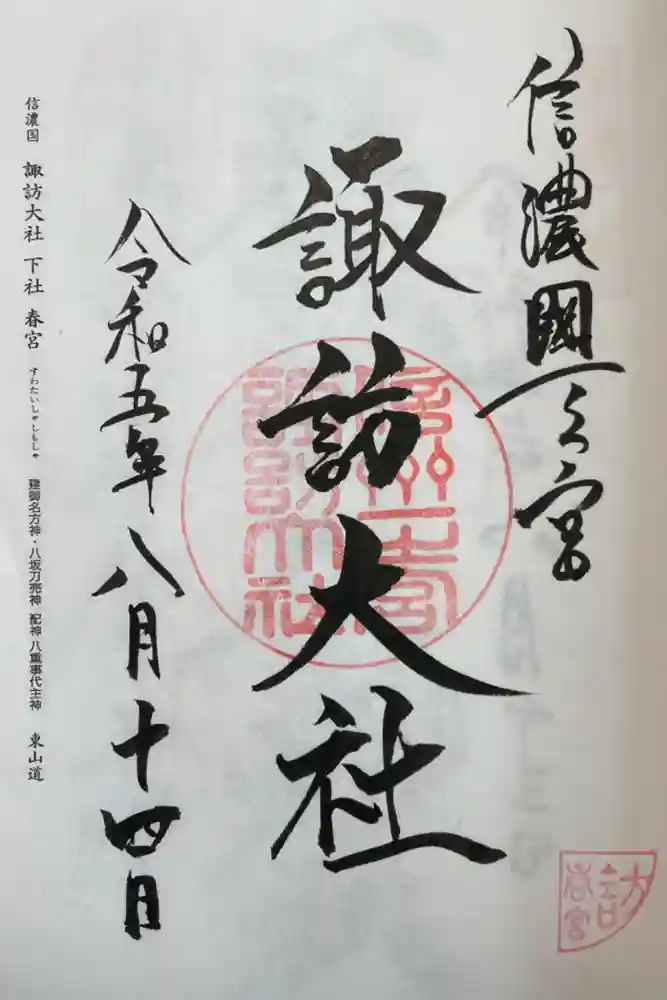 信濃國一之宮
諏訪大社
令和五年八月十四日
信濃国 諏訪大社 下社 春宮 すわたいしゃ しもしゃ 建御名方神・八坂刀売神 配神 八重事代主神 東山道
諏訪大社
訪
春宮